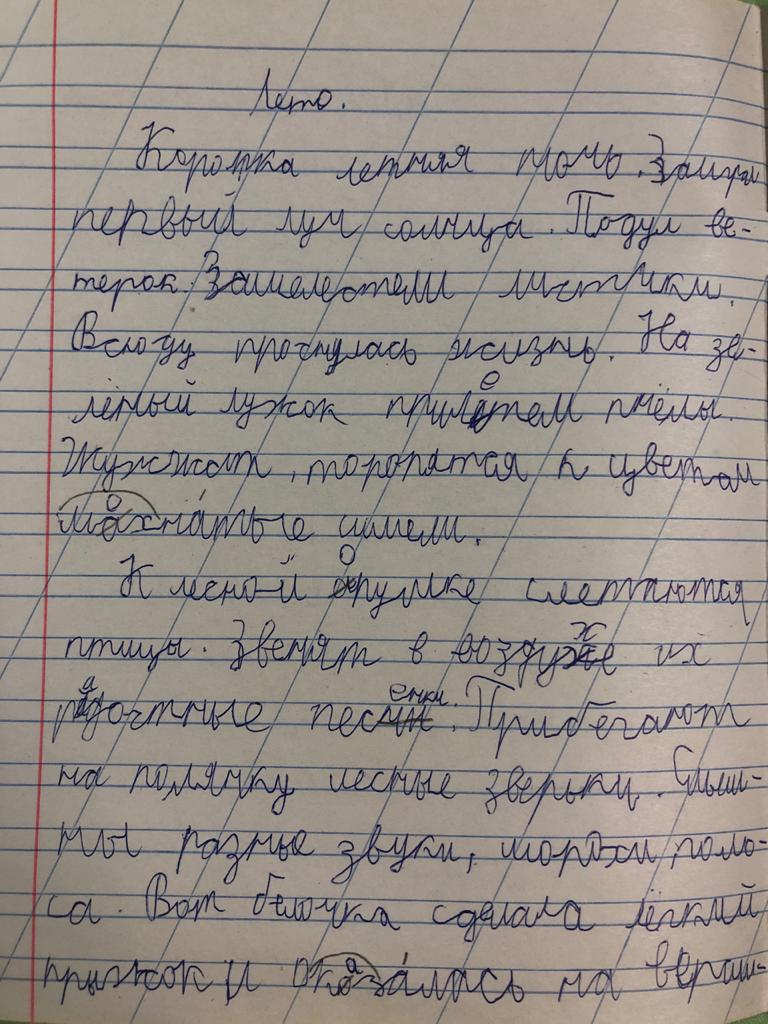 Лето.
Коротка летняя ночь. Заиграл
первый луч солнца. Подул ве-
терок. Зашелестели листики.
Всюду проснулась жизнь. На зе-
лёный лужок прилетели пчёлы.
Жужжат, торопятся к цветам
мохнатые шмели.
К лесной опушке слетаются
птицы. Звенят в воздухе их
радостные песенки. Прибегают
на полянку лесные зверьки. Слыш-
ны разные звуки, шорохи, голо-
са. Вот белочка сделала лёгкий
прыжок и оказалась на верши-